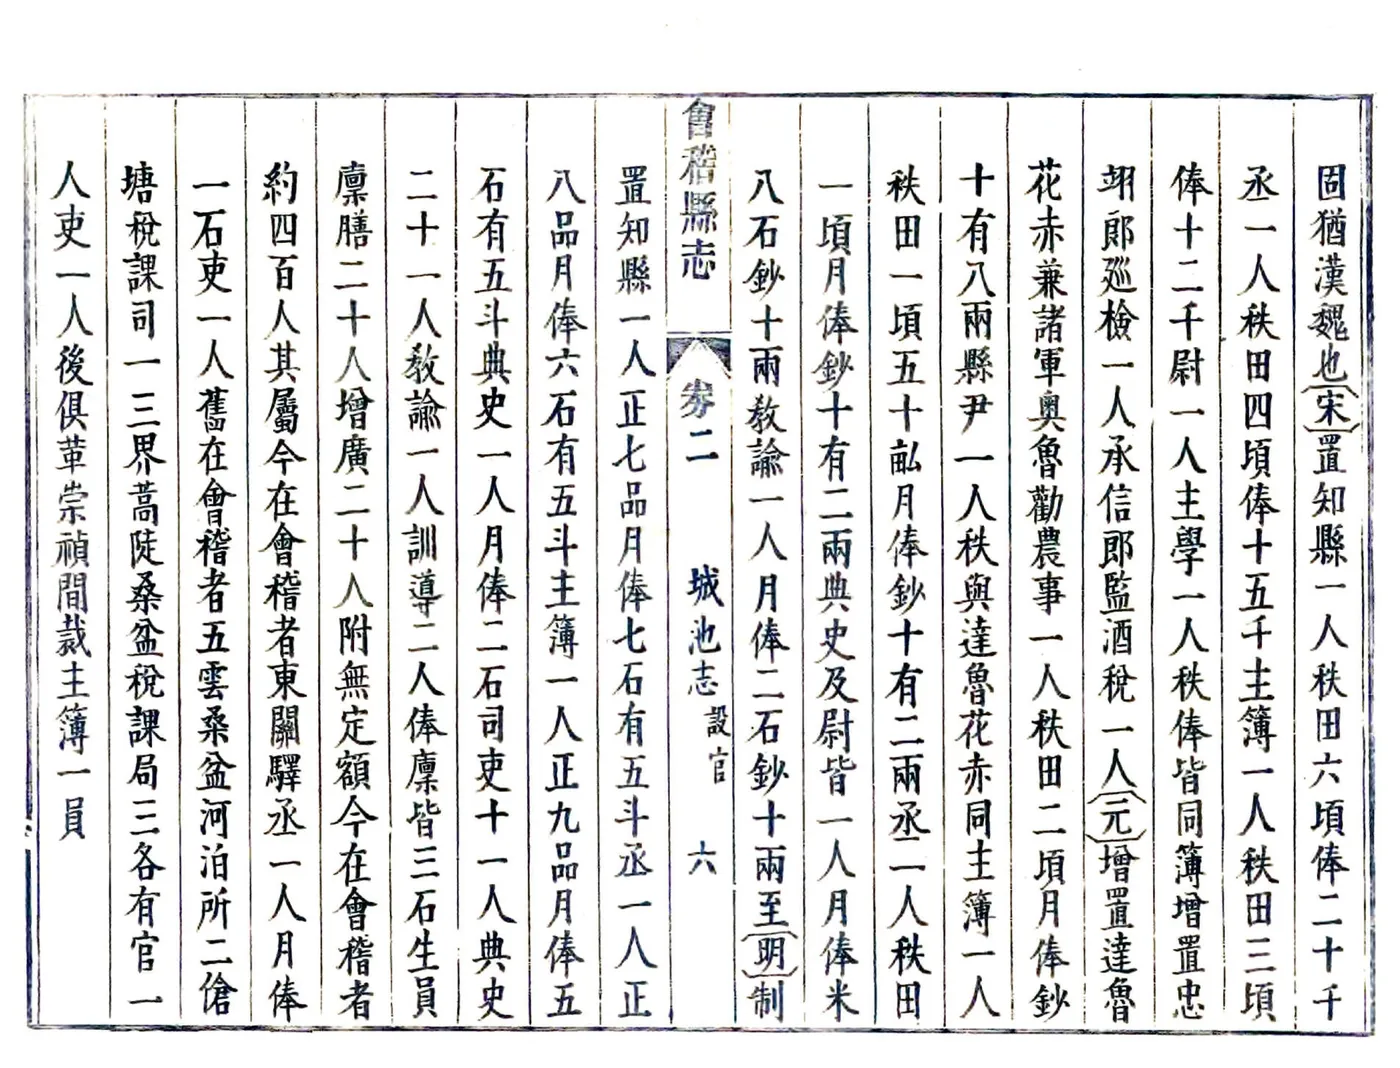 固猶漢魏也宋置知縣一人秩田六頃俸二十千
丞一人秩田四頃俸十五千主簿一人秩田三頃
俸十二千尉一人主學一人秩俸皆同簿增置忠
翊郎廵檢一人承信郎監酒稅一人元增置達魯
花赤兼諸軍奥魯勸農事一人秩田二頃月俸鈔
十有八兩縣尹一人秩與達魯花赤同主簿一人
秩田一頃五十畆月俸鈔十有二兩丞二人秩田
一頃月俸鈔十有二兩典史及尉皆一人月俸米
八石鈔十兩敎諭一人月俸二石鈔十兩至明制
會稽縣志 卷二 城池志 設官 六
置知縣一人正七品月俸七石有五斗丞一人正
八品月俸六石有五斗主簿一人正九品月俸五
石有五斗典史一人月俸二石司吏十一人典史
二十一人敎諭一人訓導二人俸廪皆三石生員
廪膳二十人增廣二十人附無定額今在會稽者
約四百人其屬今在會稽者東關驛丞一人月俸
一石吏一人舊在會稽者五雲桑盆河泊所二傖
塘稅課司一三界蒿陡桑盆稅課局三各有官一
人吏一人後俱革崇禎間裁主簿一員